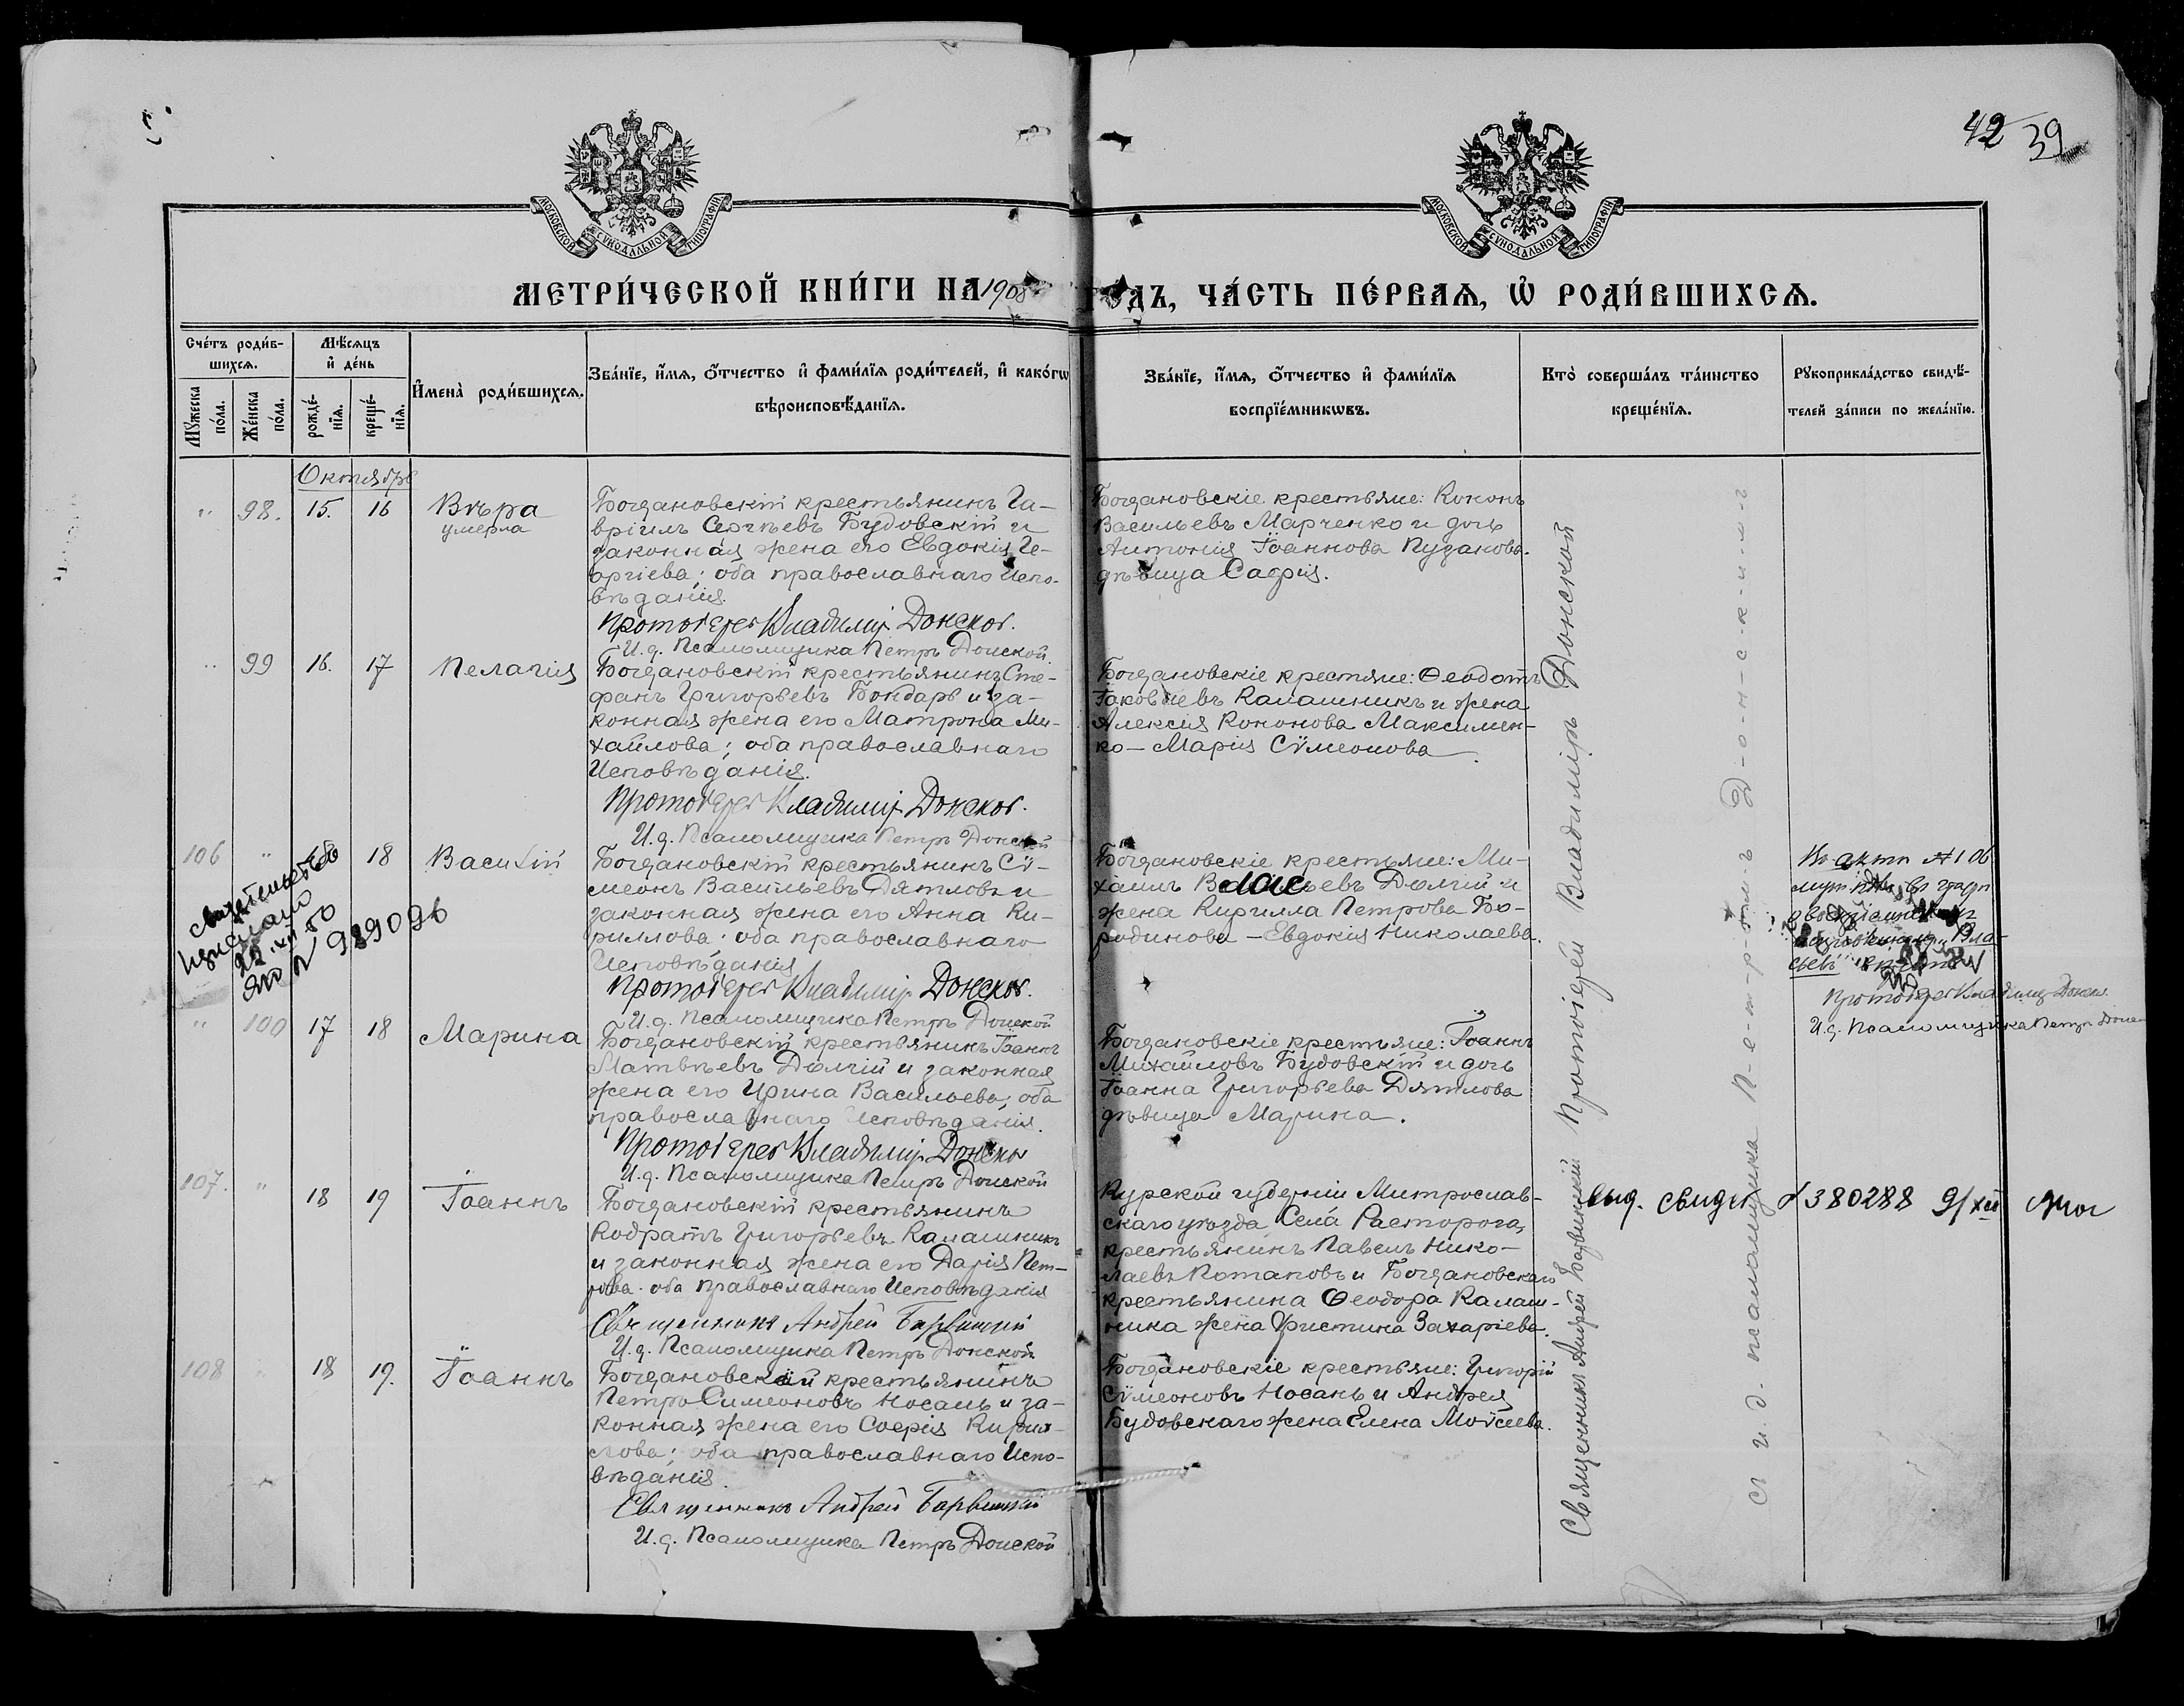 42 39
МОСКОВСКОЙ СѴНОДАЛЬНОЙ ТИПОГРАФІИ
МОСКОВСКОЙ СѴНОДАЛЬНОЙ ТИПОГРАФІИ
МЕТРИ́ЧЕСКОЙ КНИ́ГИ НА 1908 ГОДЪ, ЧА́СТЬ ПЕ́РВАѦ, Ѡ҆ РОДИ́ВШИХСѦ.
Сче́тъ роди́в-
шихсѧ.
Мꙋ́жеска по́ла.
Же́нска по́ла.
Мѣ́сѧцъ
и҆ де́нь
рожде́-
нїѧ.
креще́-
нїѧ.
И҆мена̀ роди́вшихсѧ.
Зва́нїе, и҆́мѧ, ѻ҆́тчество и҆ фами́лїѧ роди́телей, и҆ како́гѡ
вѣроисповѣ́данїѧ.
Зва́нїе, и҆́мѧ, ѻ҆́тчество и҆ фами́лїѧ
воспрїе́мникѡвъ.
Кто̀ соверша́лъ та́инство
креще́нїѧ.
Рꙋкоприкла́дство свидѣ́-
телей за́писи по жела́нїю.
Октябрь
" 98. 15. 16 Вѣра
умерла
Богдановскій крестьянинъ Га-
вріилъ Сергѣевъ Будовскій и
законная жена его Евдокія Ге-
оргіева; оба православнаго Испо-
вѣданія.
Протоіерей Владиміръ Донской.
И.д. Псаломщика Петръ Донской.
Богдановскіе крестьяне: Кононъ
Васильевъ Марченко и дочь
Антонія Іоаннова Пузанова.
дѣвица Софія.
" 99 16. 17 Пелагія
Богдановскій крестьянинъ Сте-
фанъ Григорьевъ Бондарь и за-
конная жена его Матрона Ми-
хайлова; оба православнаго
Исповѣданія.
Протоіерей Владиміръ Донской.
И.д. Псаломщика Петръ Донской
Богдановскіе крестяне: Ѳеодотъ
Іаковлевъ Калашникъ и жена
Алексія Кононова Максимен-
ко — Марія Сѵмеонова.
106 " 18 Василій
свидетельство
выслано
22.XII 50
989096
Богдановскій крестьянинъ Сѵ-
меонъ Васильевъ Дятловъ и
законная жена его Анна Ки-
риллова; оба православнаго
Исповѣданія
Протоіерей Владиміръ Донской.
И.д. Псаломщика Петръ Донской
Богдановскіе крестьяне: Ми-
хаилъ Власьевъ Долгій и
жена Кирилла Петрова Бо-
родинова — Евдокія Николаева.
Въ актѣ № 106
Протоіерей Владиміръ Донской
И.д. Псаломщика Петръ Донс-
" 100 17 18 Марина
Богдановскій крестьянинъ Іоаннъ
Матвѣевъ Долгій и законная
жена его Ирина Васильева; оба
православнаго Исповѣданія.
Протоіерей Владиміръ Донской
И.д. Псаломщика Петръ Донской
Богдановскіе крестьяне: Іоаннъ
Михайловъ Будовскій и дочь
Іоанна Григорьева Дятлова
дѣвица Марина.
107. " 18 19 Іоаннъ
Богдановскій крестьянинъ
Кодратъ Григорьевъ Калашникъ
и законная жена его Дарія Пет-
рова. оба православнаго Исповѣданія
Священникъ Андрей Барвинскій
И.д. Псаломщика Петръ Донской
Курской губерніи Митрослав-
скаго уѣзда Села Расторога,
крестьянинъ Павелъ Нико-
лаевъ Потаповъ и Богдановскаго
крестьянина Ѳеодора Калаш-
ника жена Христина Захаріева.
выд. свидет. № 380288 9/XII
108 " 18 19. Іоаннъ
Богдановскій крестьянинъ
Петръ Симеоновъ Носань и за-
конная жена его Софія Кирил-
лова; оба православнаго Испо-
вѣданія
Священникъ Андрей Барвинскій
И.д. Псаломщика Петръ Донской
Богдановскіе крестьяне: Григорій
Сѵмеоновъ Носань и Андрея
Будовскаго жена Елена Моѵсеева.
Священникъ Андрей Барвинскій Протоіерей Владиміръ Донской
съ и. д. псаломщика П-е-т-р-о-м-ъ Д-о-н-с-к-и-м-ъ